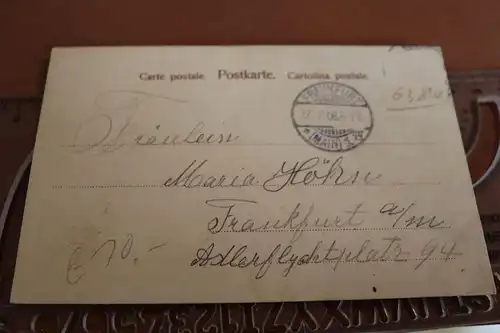 Carte postale. Postkarte. Cartolina postale.
FRANKFURT
(MAIN)
Fräulein
Maria Höhn
Frankfurt a/m
Adlerflychtplatz 94
€ 10.-